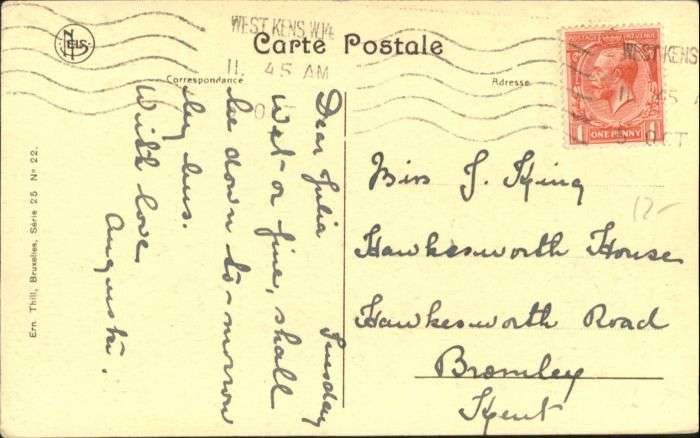 WEST KENS. W.14
11. 45 AM
Carte Postale
Correspondance
Adresse
POSTAGE REVENUE
1 ONE PENNY 1
WEST KENS
11 45 A
OCT
NELS
Ern. Thill, Bruxelles, Série 25 No 22.
Tuesday
Dear Julia
Wet or fine, shall
be down to-morrow
by bus.
With love
Augusta.
Miss J. King
Hawkesworth House
Hawkesworth Road
Bromley
Kent
12-